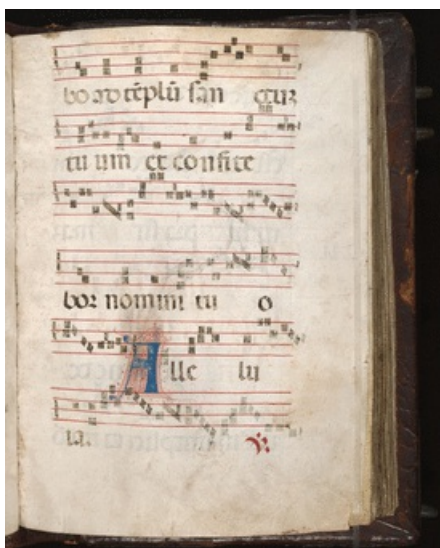 bo ad tēplū san ctū
tu um et confite
bor nomini tu o
Alle lu
ia. ℣.